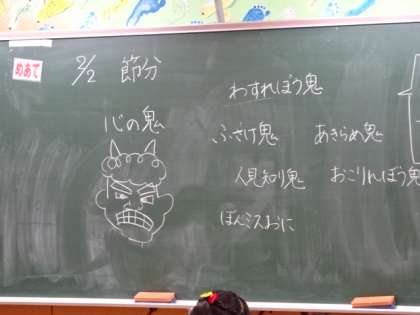 めあて
2/2 節分
心の鬼
わすれぼう鬼
ふざけ鬼 あきらめ鬼
人見知り鬼 おこりんぼう鬼
ぽんミスおに